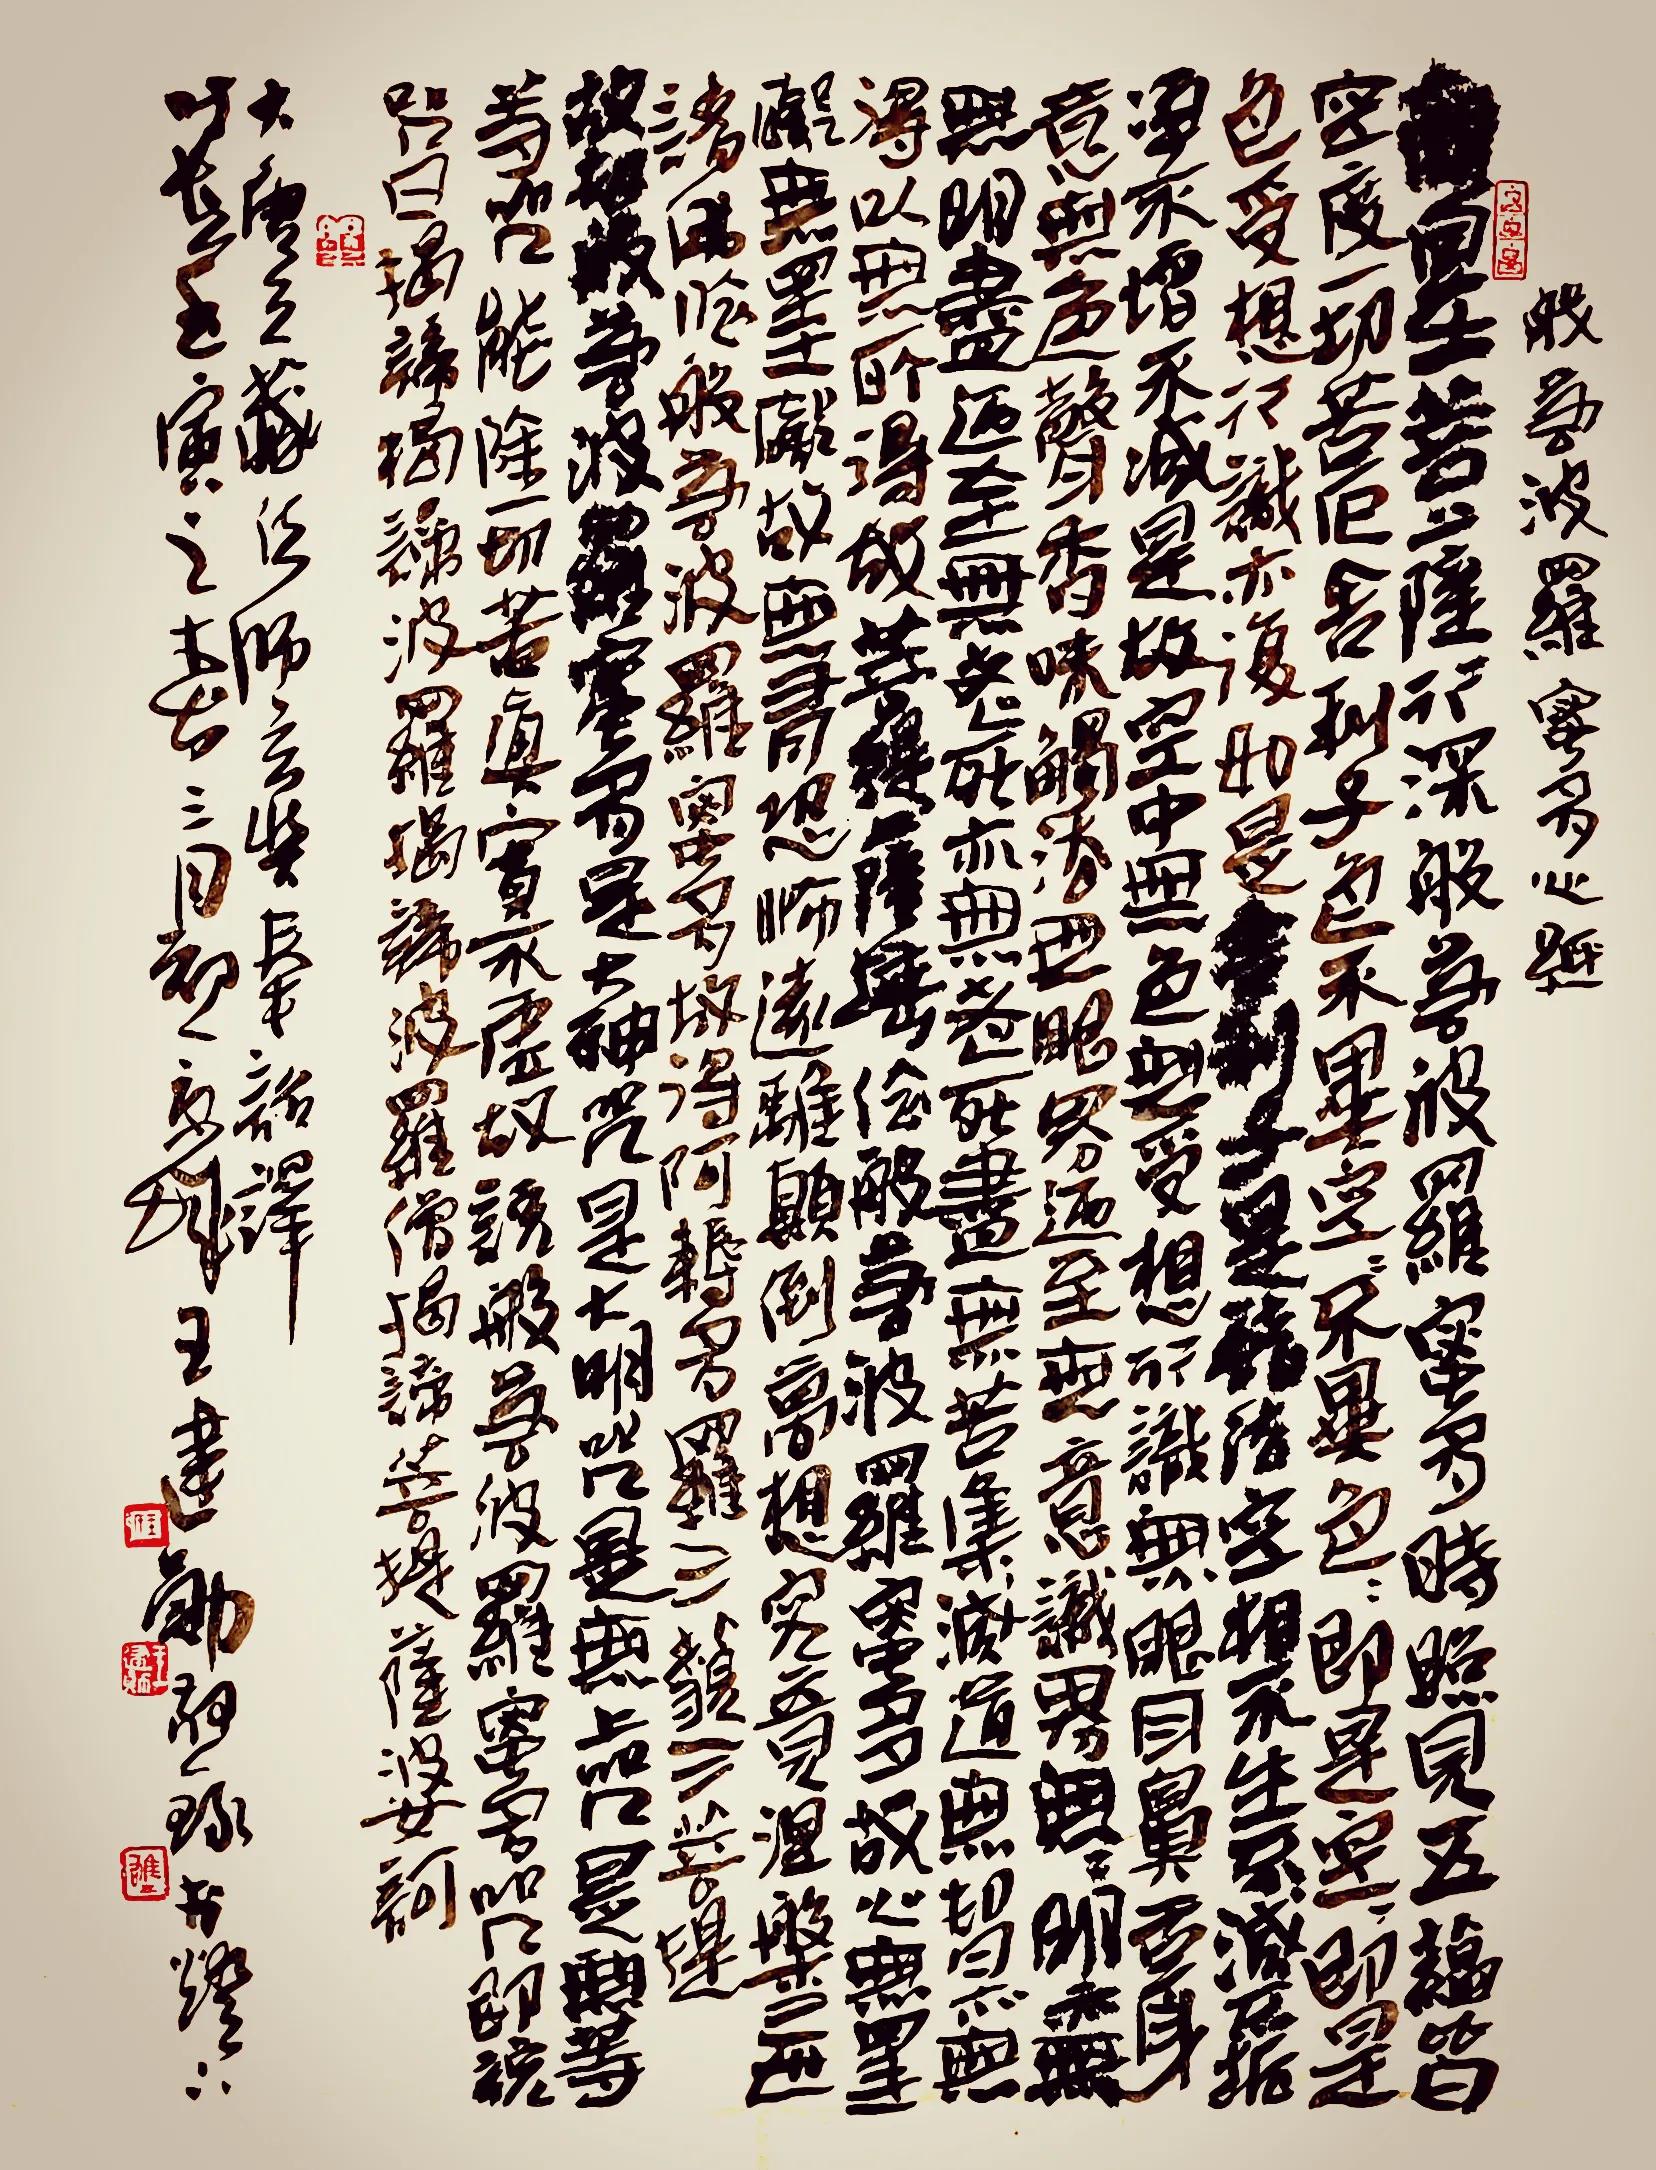 般若波羅蜜多心經
觀自在菩薩行深般若波羅蜜多時照見五蘊皆
空度一切苦厄舍利子色不異空:不異色:即是空:即是
色受想行識亦復如是舍利子是諸法空相不生不滅不垢
不淨不增不減是故空中無色無受想行識無眼耳鼻舌身
意無色聲香味觸法無眼界迺至無意識界無:明亦無
無明盡迺至無老死亦無老死盡無苦集滅道無智亦無
得以無所得故菩提薩埵依般若波羅蜜多故心無罣
礙無罣礙故無有恐怖遠離顛倒夢想究竟涅槃三世
諸佛依般若波羅蜜多故得阿耨多羅三藐三菩提
故知般若波羅蜜多是大神咒是大明咒是無上咒是無等
等咒能除一切苦真實不虛故說般若波羅蜜多咒即說
咒曰揭諦揭諦波羅揭諦波羅僧揭諦菩提薩婆訶
大唐三藏法師玄奘奉詔譯
時在壬寅之春三月初 王建勛 於 書燈下